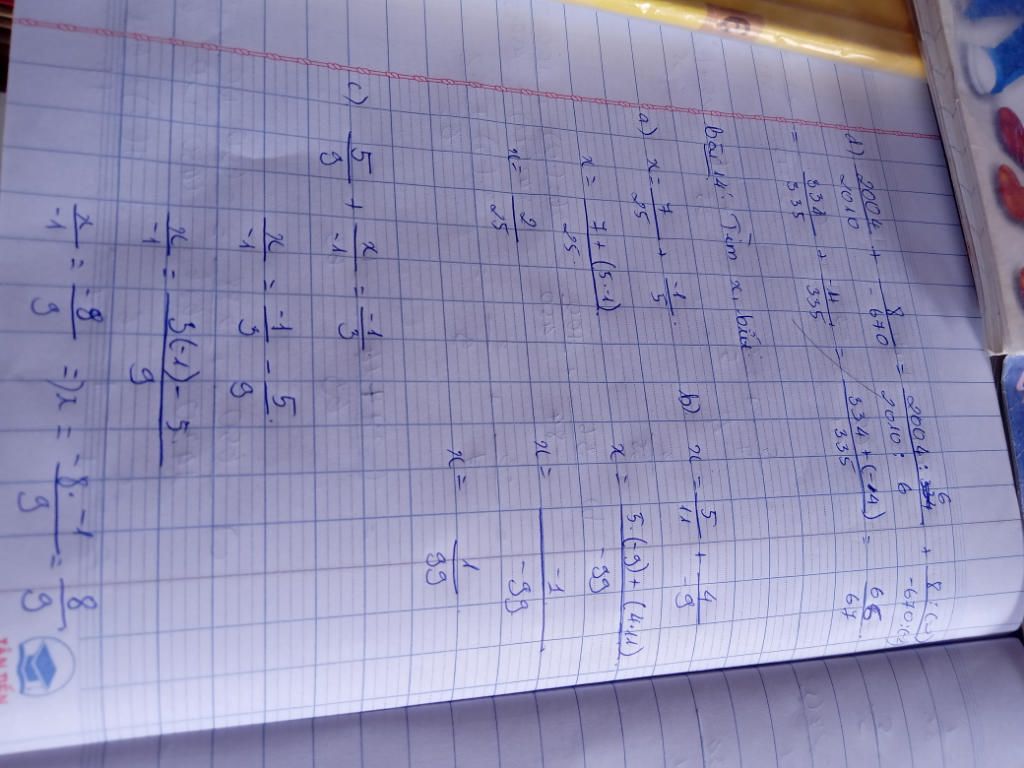 d) 2004/2010 + 8/-670 = 2004:6/2010:6 + 8:(-2)/-670:(-2)
= 334/335 + -4/335 = 334+(-4)/335 = 66/67
bài 14: Tìm x, biết
a) x = 7/25 + -1/5
x = 7+(5.-1)/25
x = 2/25
b) x = 5/11 + 4/-9
x = 5.(-9)+(4.11)/-99
x = -1/-99
x = 1/99
c) 5/9 + x/-1 = -1/3 +
x/-1 = -1/3 - 5/9
x/-1 = 3(-1)-5/9
x/-1 = -8/9 => x = -8.-1/9 = 8/9
TÂN TIẾN